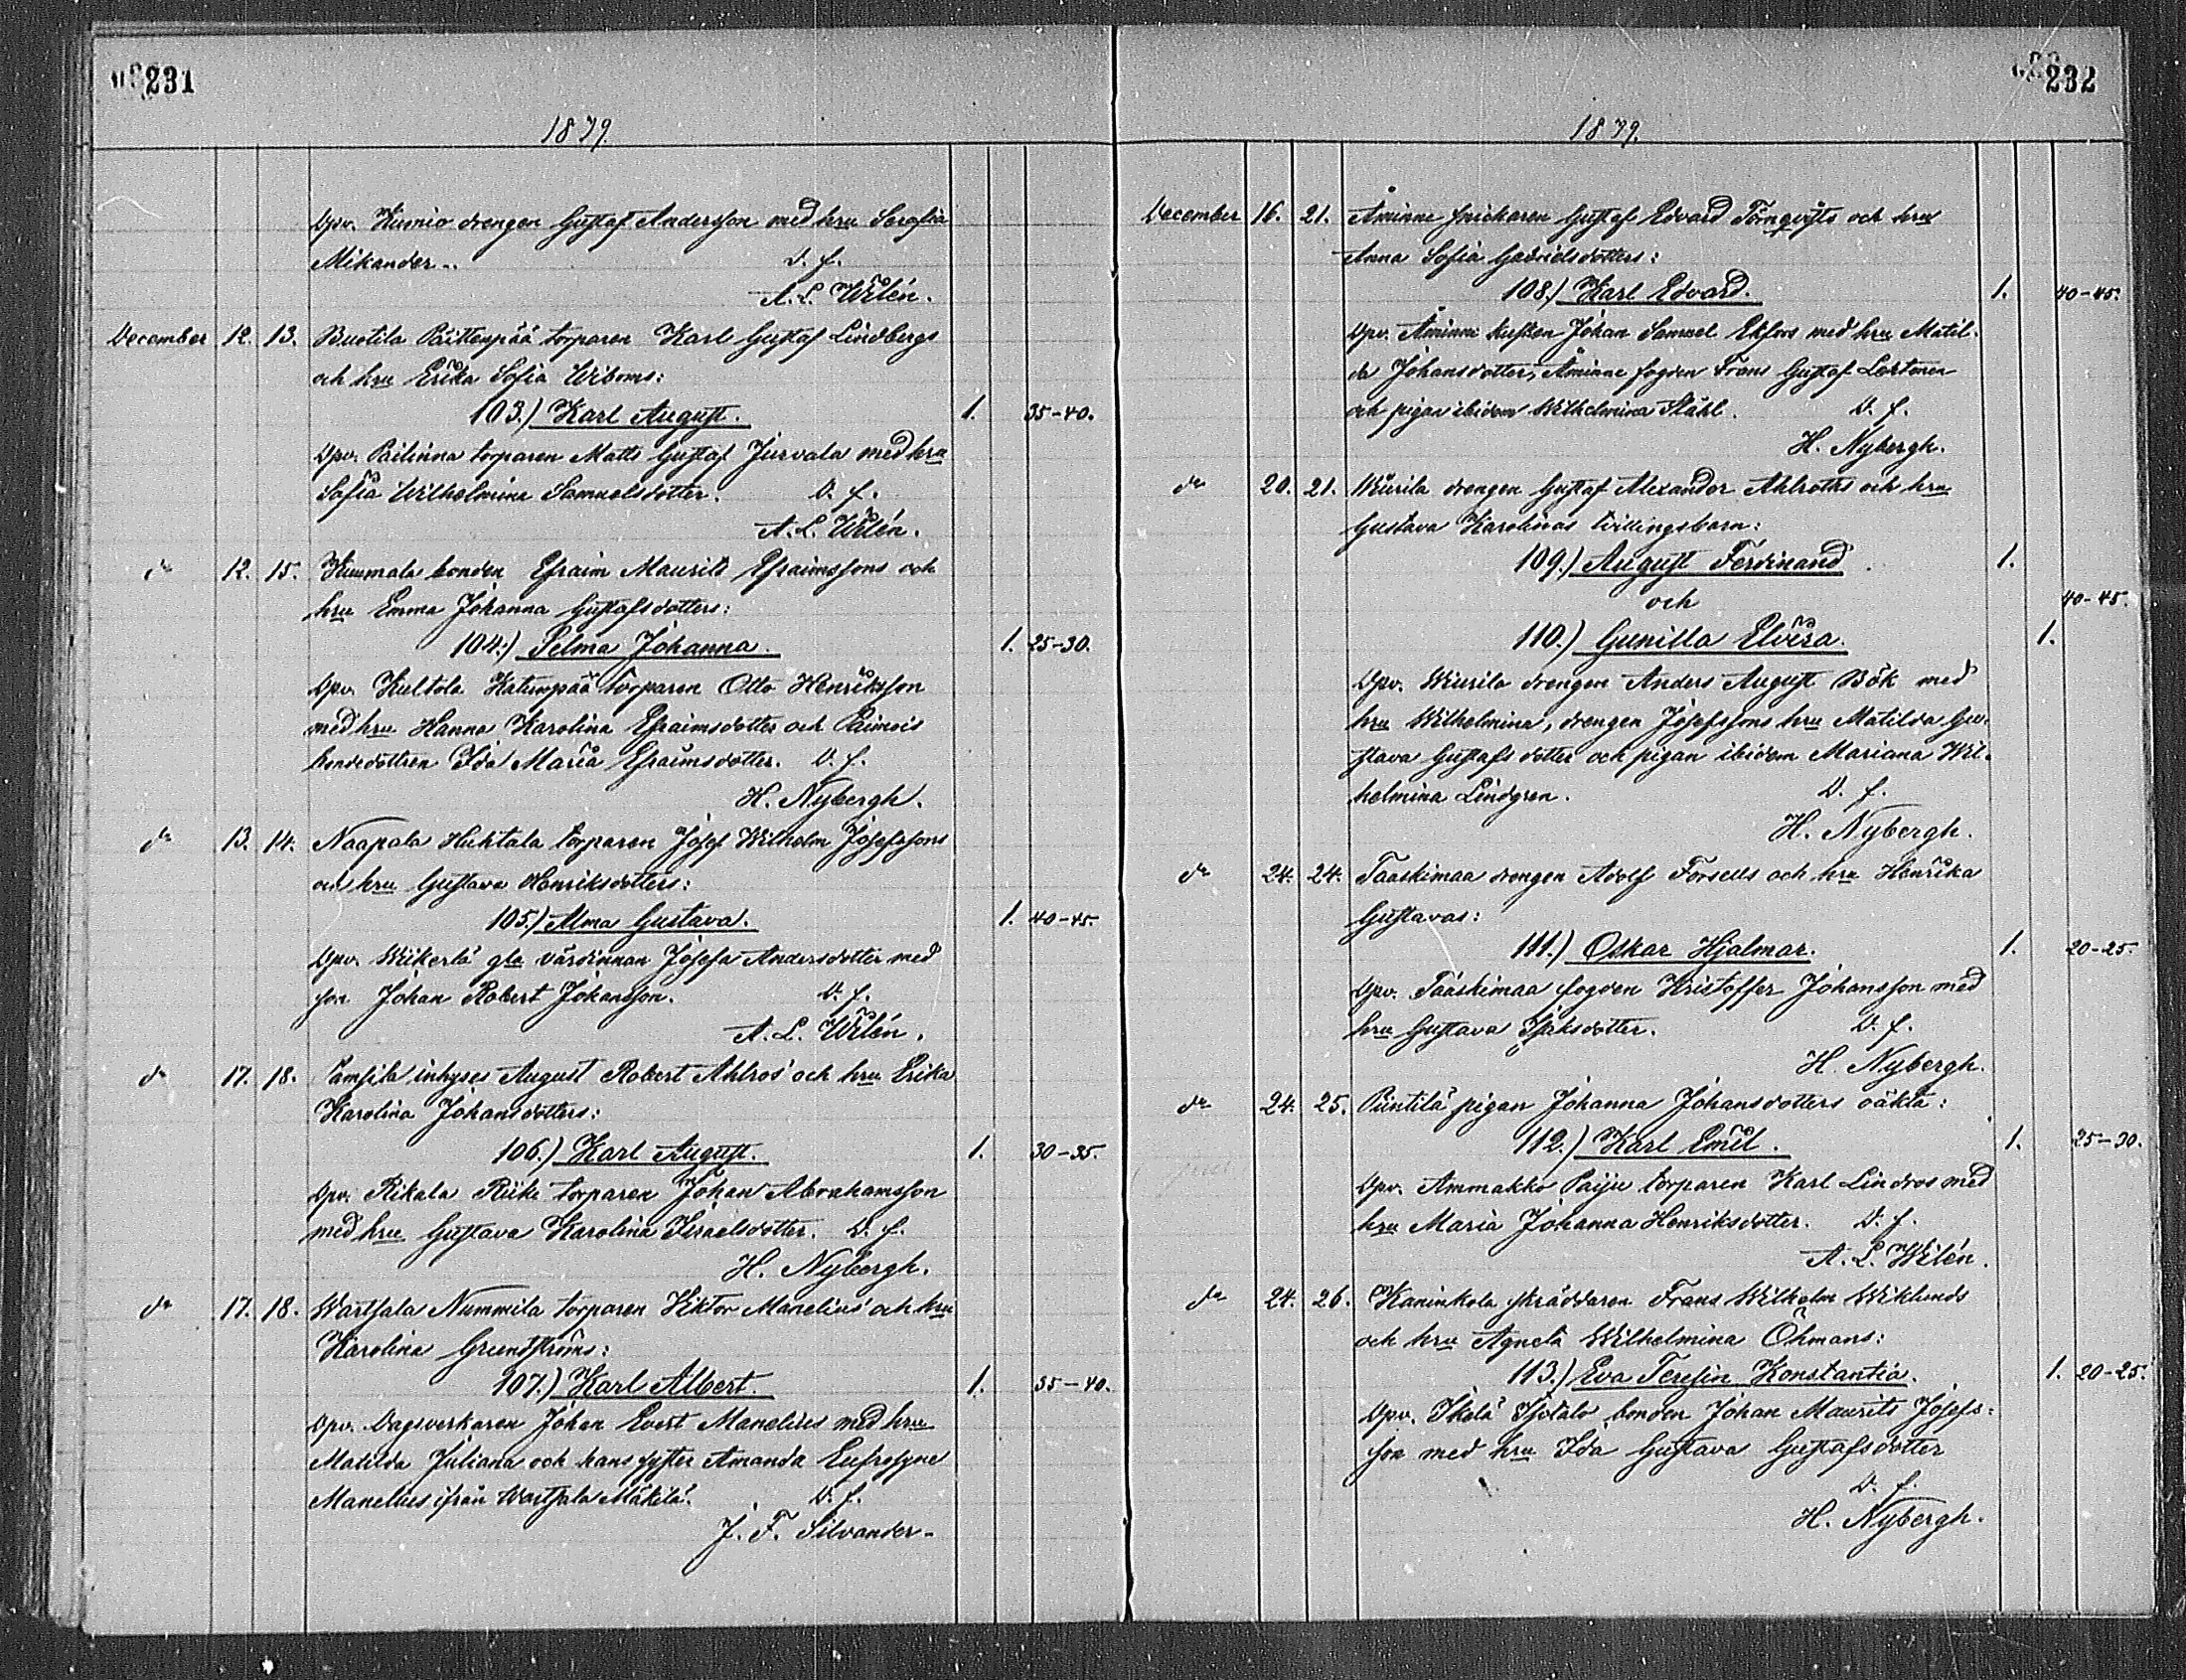 231
1879.
Dpv. Kumio drengen Gustaf Andersson med hru Serafia
Mikander.. D. f.
A. L. Wilén.
December 12. 13. Buotila Päittenpää torparen Karl Gustaf Lindbergs
och hru Erika Sofia Wiboms:
103.) Karl August. 1. 35-40.
Dpv. Pailinna torparen Matts Gustaf Jurvala med hru
Sofia Wilhelmina Samuelsdotter. D. f.
A. L. Wilén.
do 12. 15. Kuumala bonden Efraim Maurits Efraimssons och
hru Emma Johanna Gustafsdotters:
104.) Selma Johanna. 1. 25-30.
Dpv. Kultola Katumpää torparen Otto Henriksson
med hru Hanna Karolina Efraimsdotter och Raimois
bondedottren Ida Maria Efraimsdotter. D. f.
H. Nybergh.
do 13. 14. Naapala Huhtala torparen Josef Wilhelm Josefssons
och hru Gustava Henriksdotters:
105.) Alma Gustava. 1. 40-45.
Dpv. Wiikerlä gla värdinnan Josefa Andersdotter med
son Johan Robert Johansson. D. f.
A. L. Wilén.
do 17. 18. Pamsila inhyses August Robert Ahlros' och hru Erika
Karolina Johansdotters:
106.) Karl August. 1. 30-35.
Dpv. Rikala Riihi torparen Johan Abrahamsson
med hru Gustava Karolina Israelsdotter. D. f.
H. Nybergh.
do 17. 18. Wartsala Nummila torparen Viktor Manelius' och hru
Karolina Grundströms:
107.) Karl Albert. 1. 35-40.
Dpv. Dagsverkaren Johan Evert Manelius med hru
Matilda Juliana och hans syster Amanda Eufrosyne
Manelius ifrån Wartsala Mäkilä. D. f.
J. F. Silvander.
232
1879.
December 16. 21. Åminne snickaren Gustaf Edvard Törnqvists och hru
Anna Sofia Gabrielsdotters:
108.) Karl Edvard. 1. 40-45.
Dpv. Åminne kusken Johan Samuel Ekfors med hru Matil-
da Johansdotter, Åminne fogden Frans Gustaf Lostonen
och pigan ibidem Wilhelmina Ståhl. D. f.
H. Nybergh.
do 20. 21. Wiurila drengen Gustaf Alexander Ahlroths och hru
Gustava Karolinas tvillingsbarn:
109.) August Ferdinand 1.
och 40-45.
110.) Gunilla Elvira. 1.
Dpv. Wiurila drengen Anders August Bök med
hru Wilhelmina, drengen Josefssons hru Matilda Gu-
stava Gustafsdotter och pigan ibidem Mariana Wil-
helmina Lindgren. D. f.
H. Nybergh.
do 24. 24. Taaskimaa drengen Adolf Forsells och hru Henrika
Gustavas:
111.) Oskar Hjalmar. 1. 20-25.
Dpv. Taaskimaa fogden Kristoffer Johansson med
hru Gustava Isaksdotter. D. f.
H. Nybergh.
do 24. 25. Piintilä pigan Johanna Johansdotters oäkta:
112.) Karl Emil. 1. 25-30.
Dpv. Ammakko Paiju torparen Karl Lindros med
hru Maria Johanna Henriksdotter. D. f.
A. L. Wilén.
do 24. 26. Kaninkola skräddaren Frans Wilhelm Wiklunds
och hru Agneta Wilhelmina Öhmans:
113.) Eva Teresia Konstantia. 1. 20-25.
Dpv. Ikolä Isotalo bonden Johan Maurits Josefs-
son med hru Ida Gustava Gustafsdotter
D. f.
H. Nybergh.